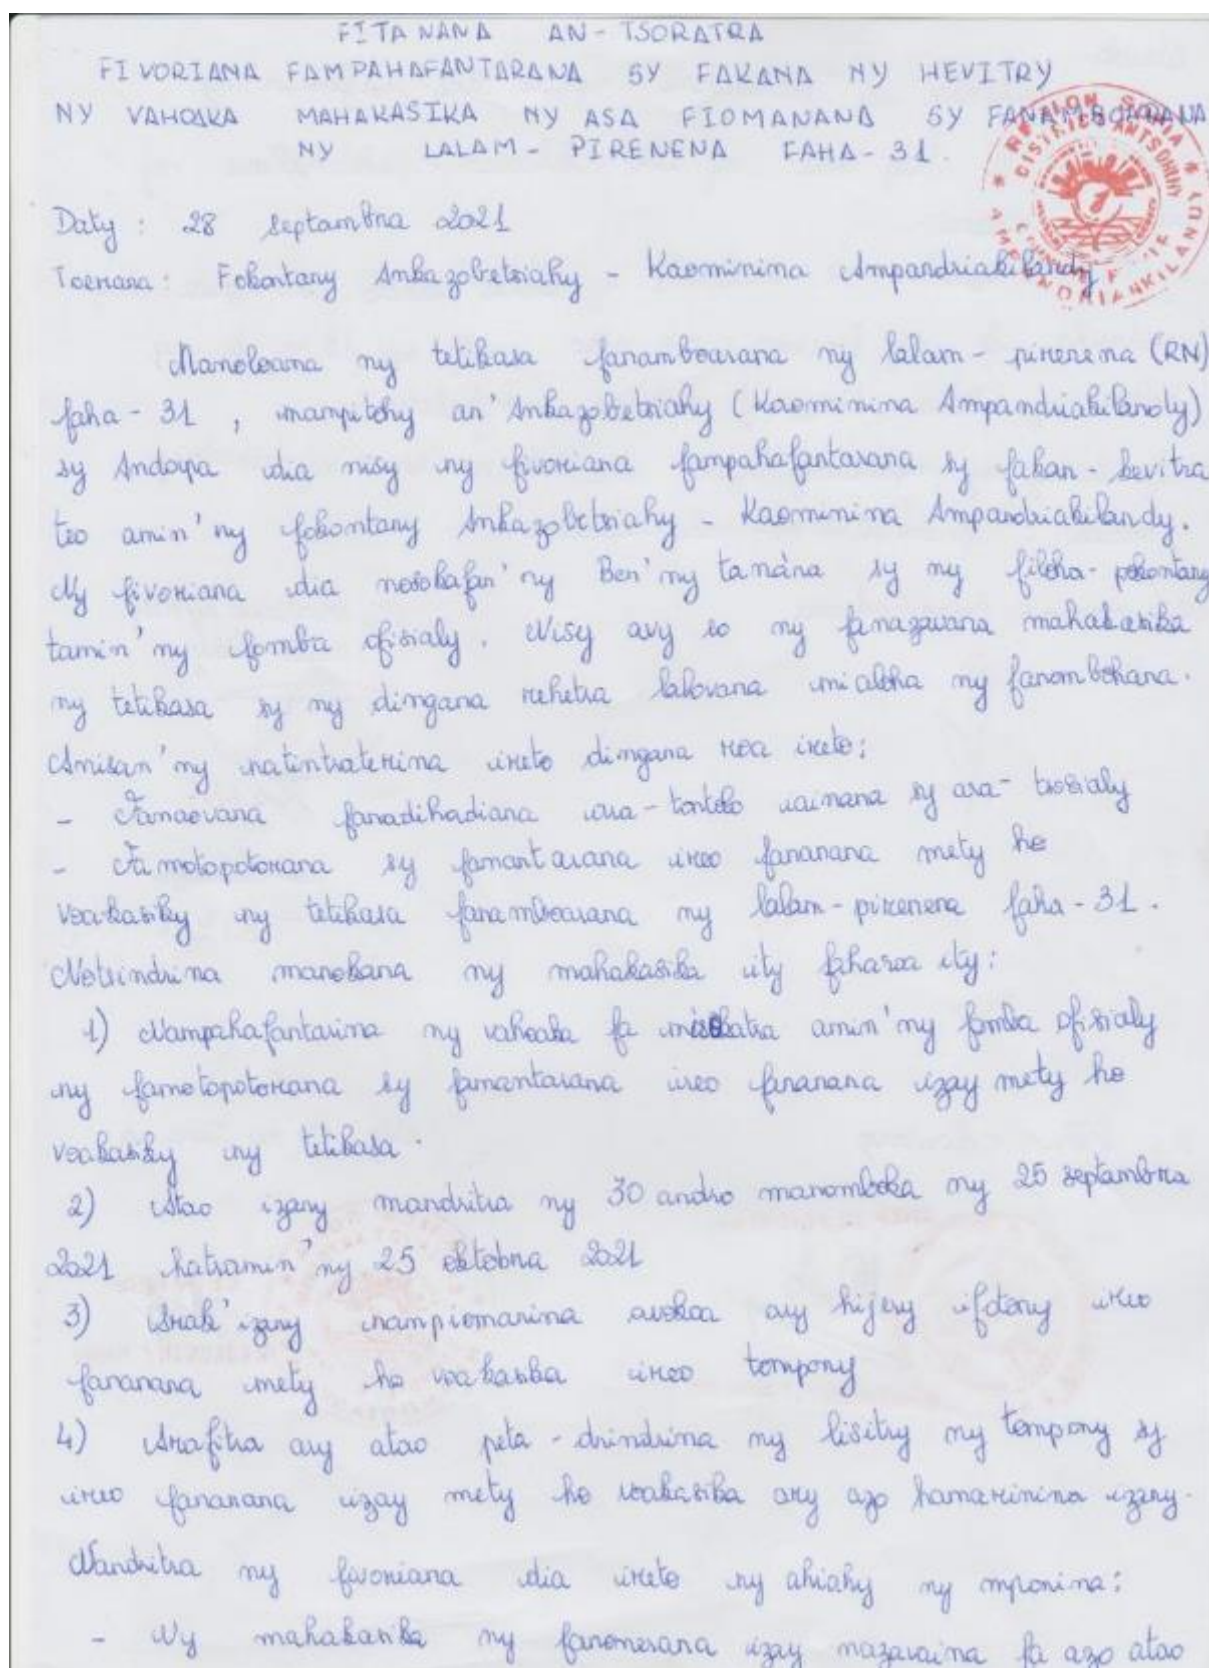 FITANANA AN-TSORATRA
FIVORIANA FAMPAHAFANTARANA SY FAKANA NY HEVITRY
NY VAHOAKA MAHAKASIKA NY ASA FIOMANANA SY FANAMBOARANA
NY LALAM-PIRENENA FAHA-31.
REGION SOFIA
DISTRICT ANTSOHIHY
Daty : 28 septambra 2021
Toerana : Fokontany Ankazobetsiahy - Kaominina Ampandriakilandy
Manoloana ny tetikasa fanamboarana ny lalam-pirenena (RN)
faha-31, mampitohy an'Ankazobetsiahy (Kaominina Ampandriakilandy)
sy Andoypa dia nisy ny fivoriana fampahafantarana sy fakan-kevitra
teo amin'ny fokontany Ankazobetsiahy - Kaominina Ampandriakilandy.
Ny fivoriana dia nosokafan'ny Ben'ny tanàna sy ny filoha-pokontany
tamin'ny fomba ofisialy. Nisy avy eo ny fanazavana mahakasika
ny tetikasa sy ny dingana rehetra lalovana mialoha ny fanombohana.
Anisan'ny natintraterina ireto dingana roa ireto:
- Fanaovana fanadihadiana ara-tontolo iainana sy ara-tsosialy
- Famotopotorana sy famantarana ireo fananana mety ho
voakasiky ny tetikasa fanamboarana ny lalam-pirenena faha-31.
Notsindrina manokana ny mahakasika ity faharoa ity:
1) Nampahafantarina ny vahoaka fa amin'ny fomba ofisialy
ny famotopotorana sy famantarana ireo fananana izay mety ho
voakasiky ny tetikasa.
2) Atao izany mandritra ny 30 andro manomboka ny 25 septambra
2021 hatramin'ny 25 oktobra 2021
3) Arak'izany nampiomanina avokoa ary hijery ifotony ireo
fananana mety ho voakasika ireo tompony
4) Arafitra ary atao peta-drindrina ny lisitry ny tompony sy
ireo fananana izay mety ho voakasika ary azo hamarinina izany.
Nandritra ny fivoriana dia ireto ny ahiahy ny mponina:
- Ny mahakasika ny fanomezana izay nazavaina fa azo atao